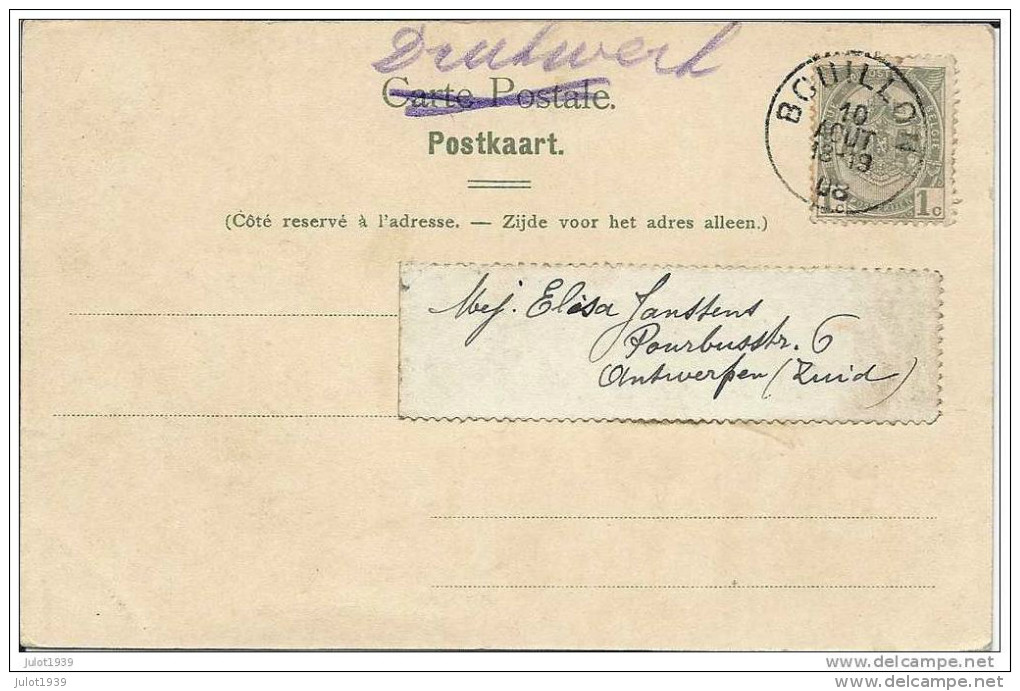 Drukwerk
Carte Postale.
Postkaart.
BOUILLON
10
AOUT
18-19
08
1c 1c
(Côté reservé à l'adresse. — Zijde voor het adres alleen.)
Mej. Elisa Janssens
Pourbusstr. 6
Antwerpen (Zuid)
julot1939
julot1939
www.delcampe.net
www.delcampe.net